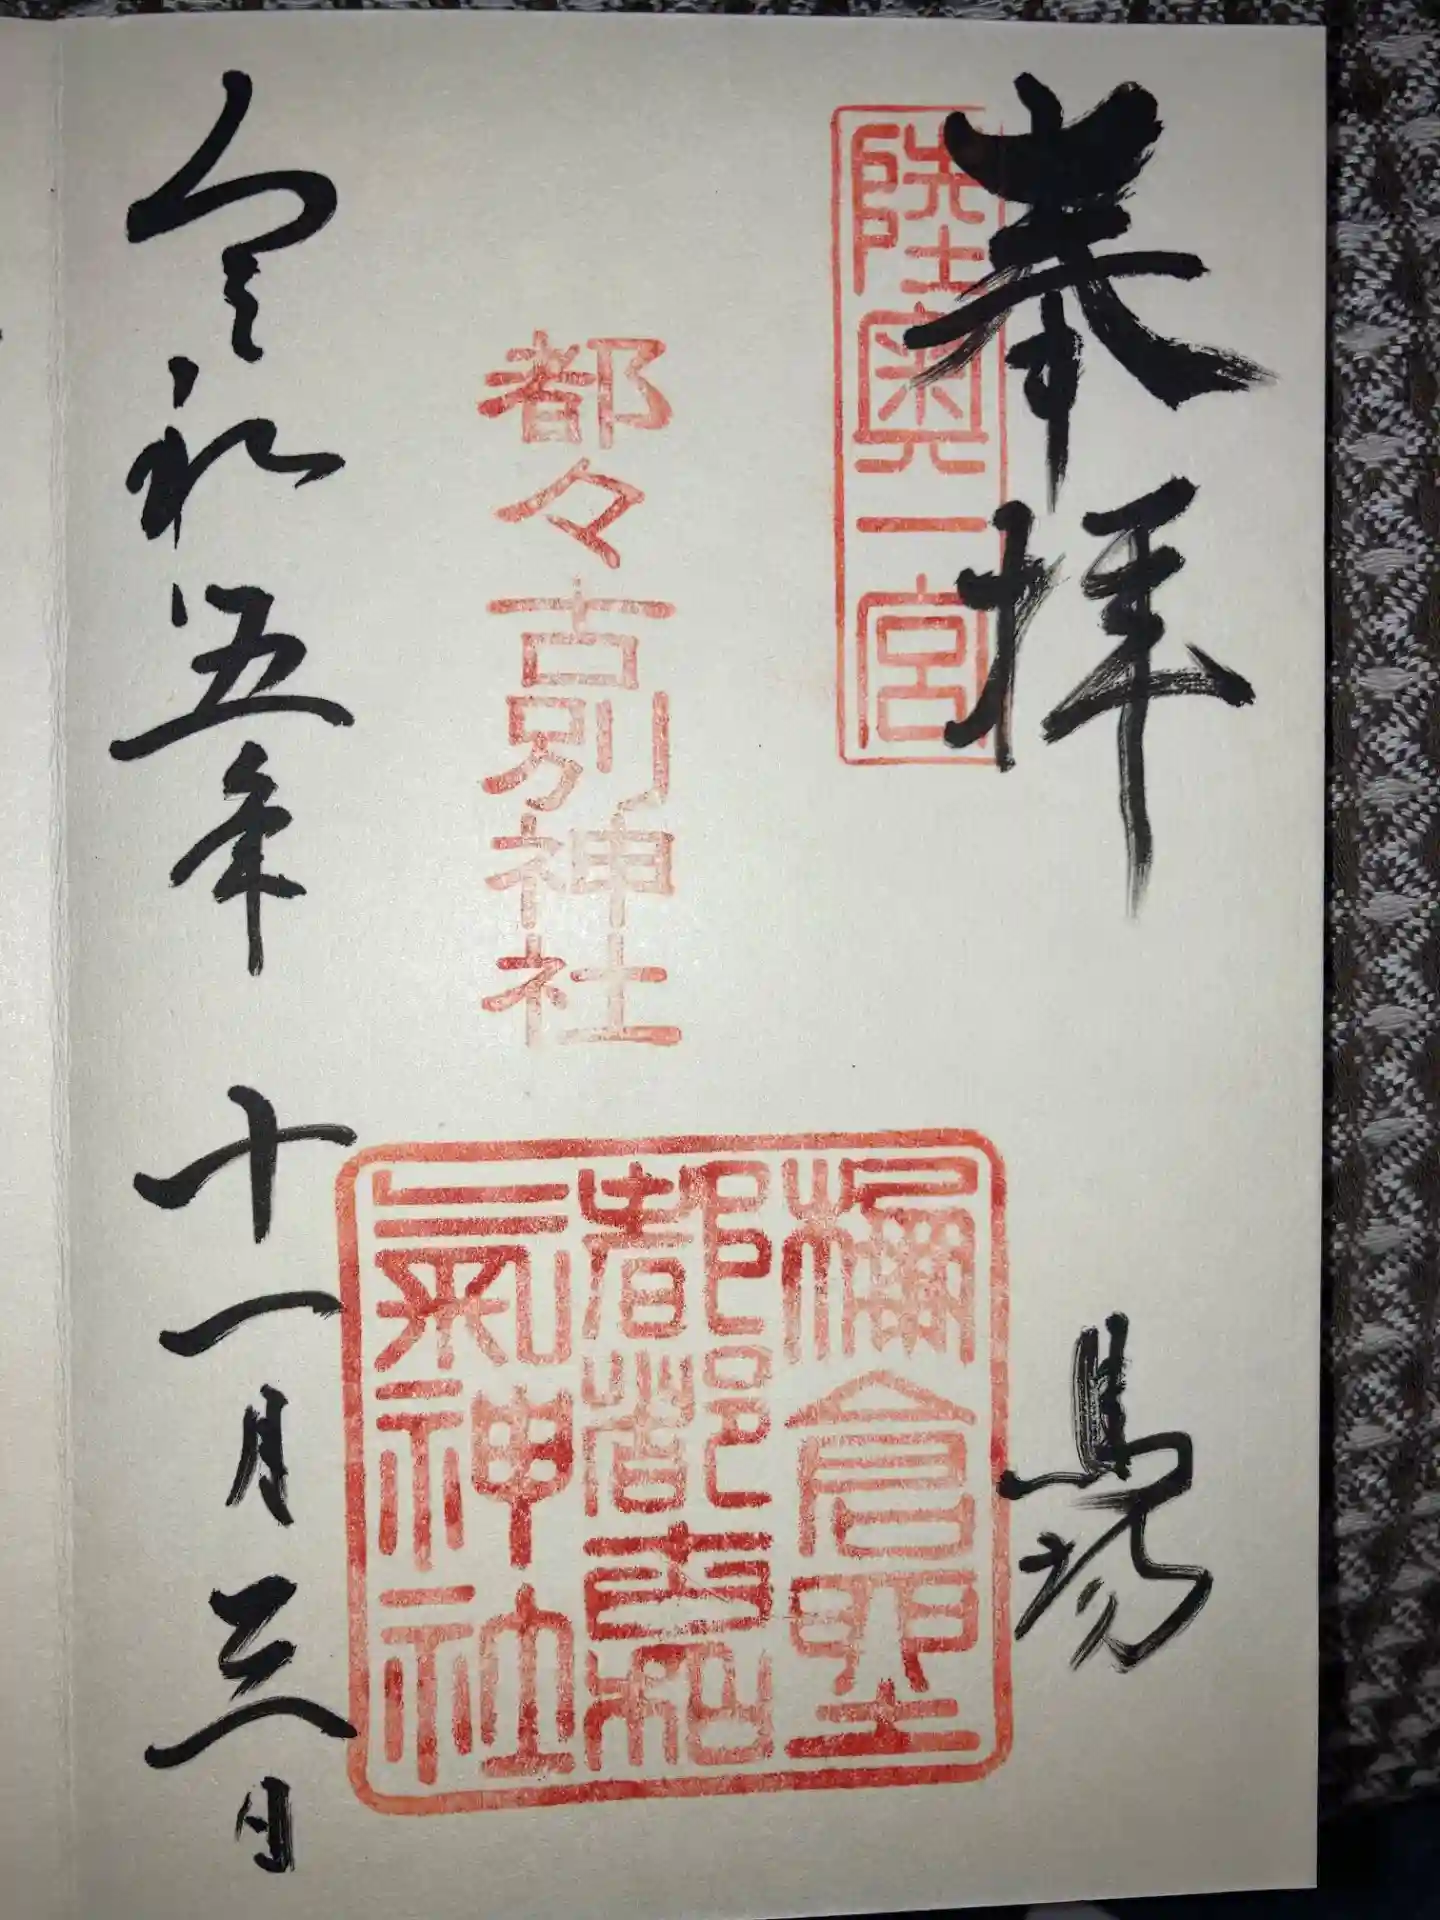 奉拝
陸奥一宮
馬場
都々古別神社
棚倉坐
都都古和
氣神社
令和五年十一月三日